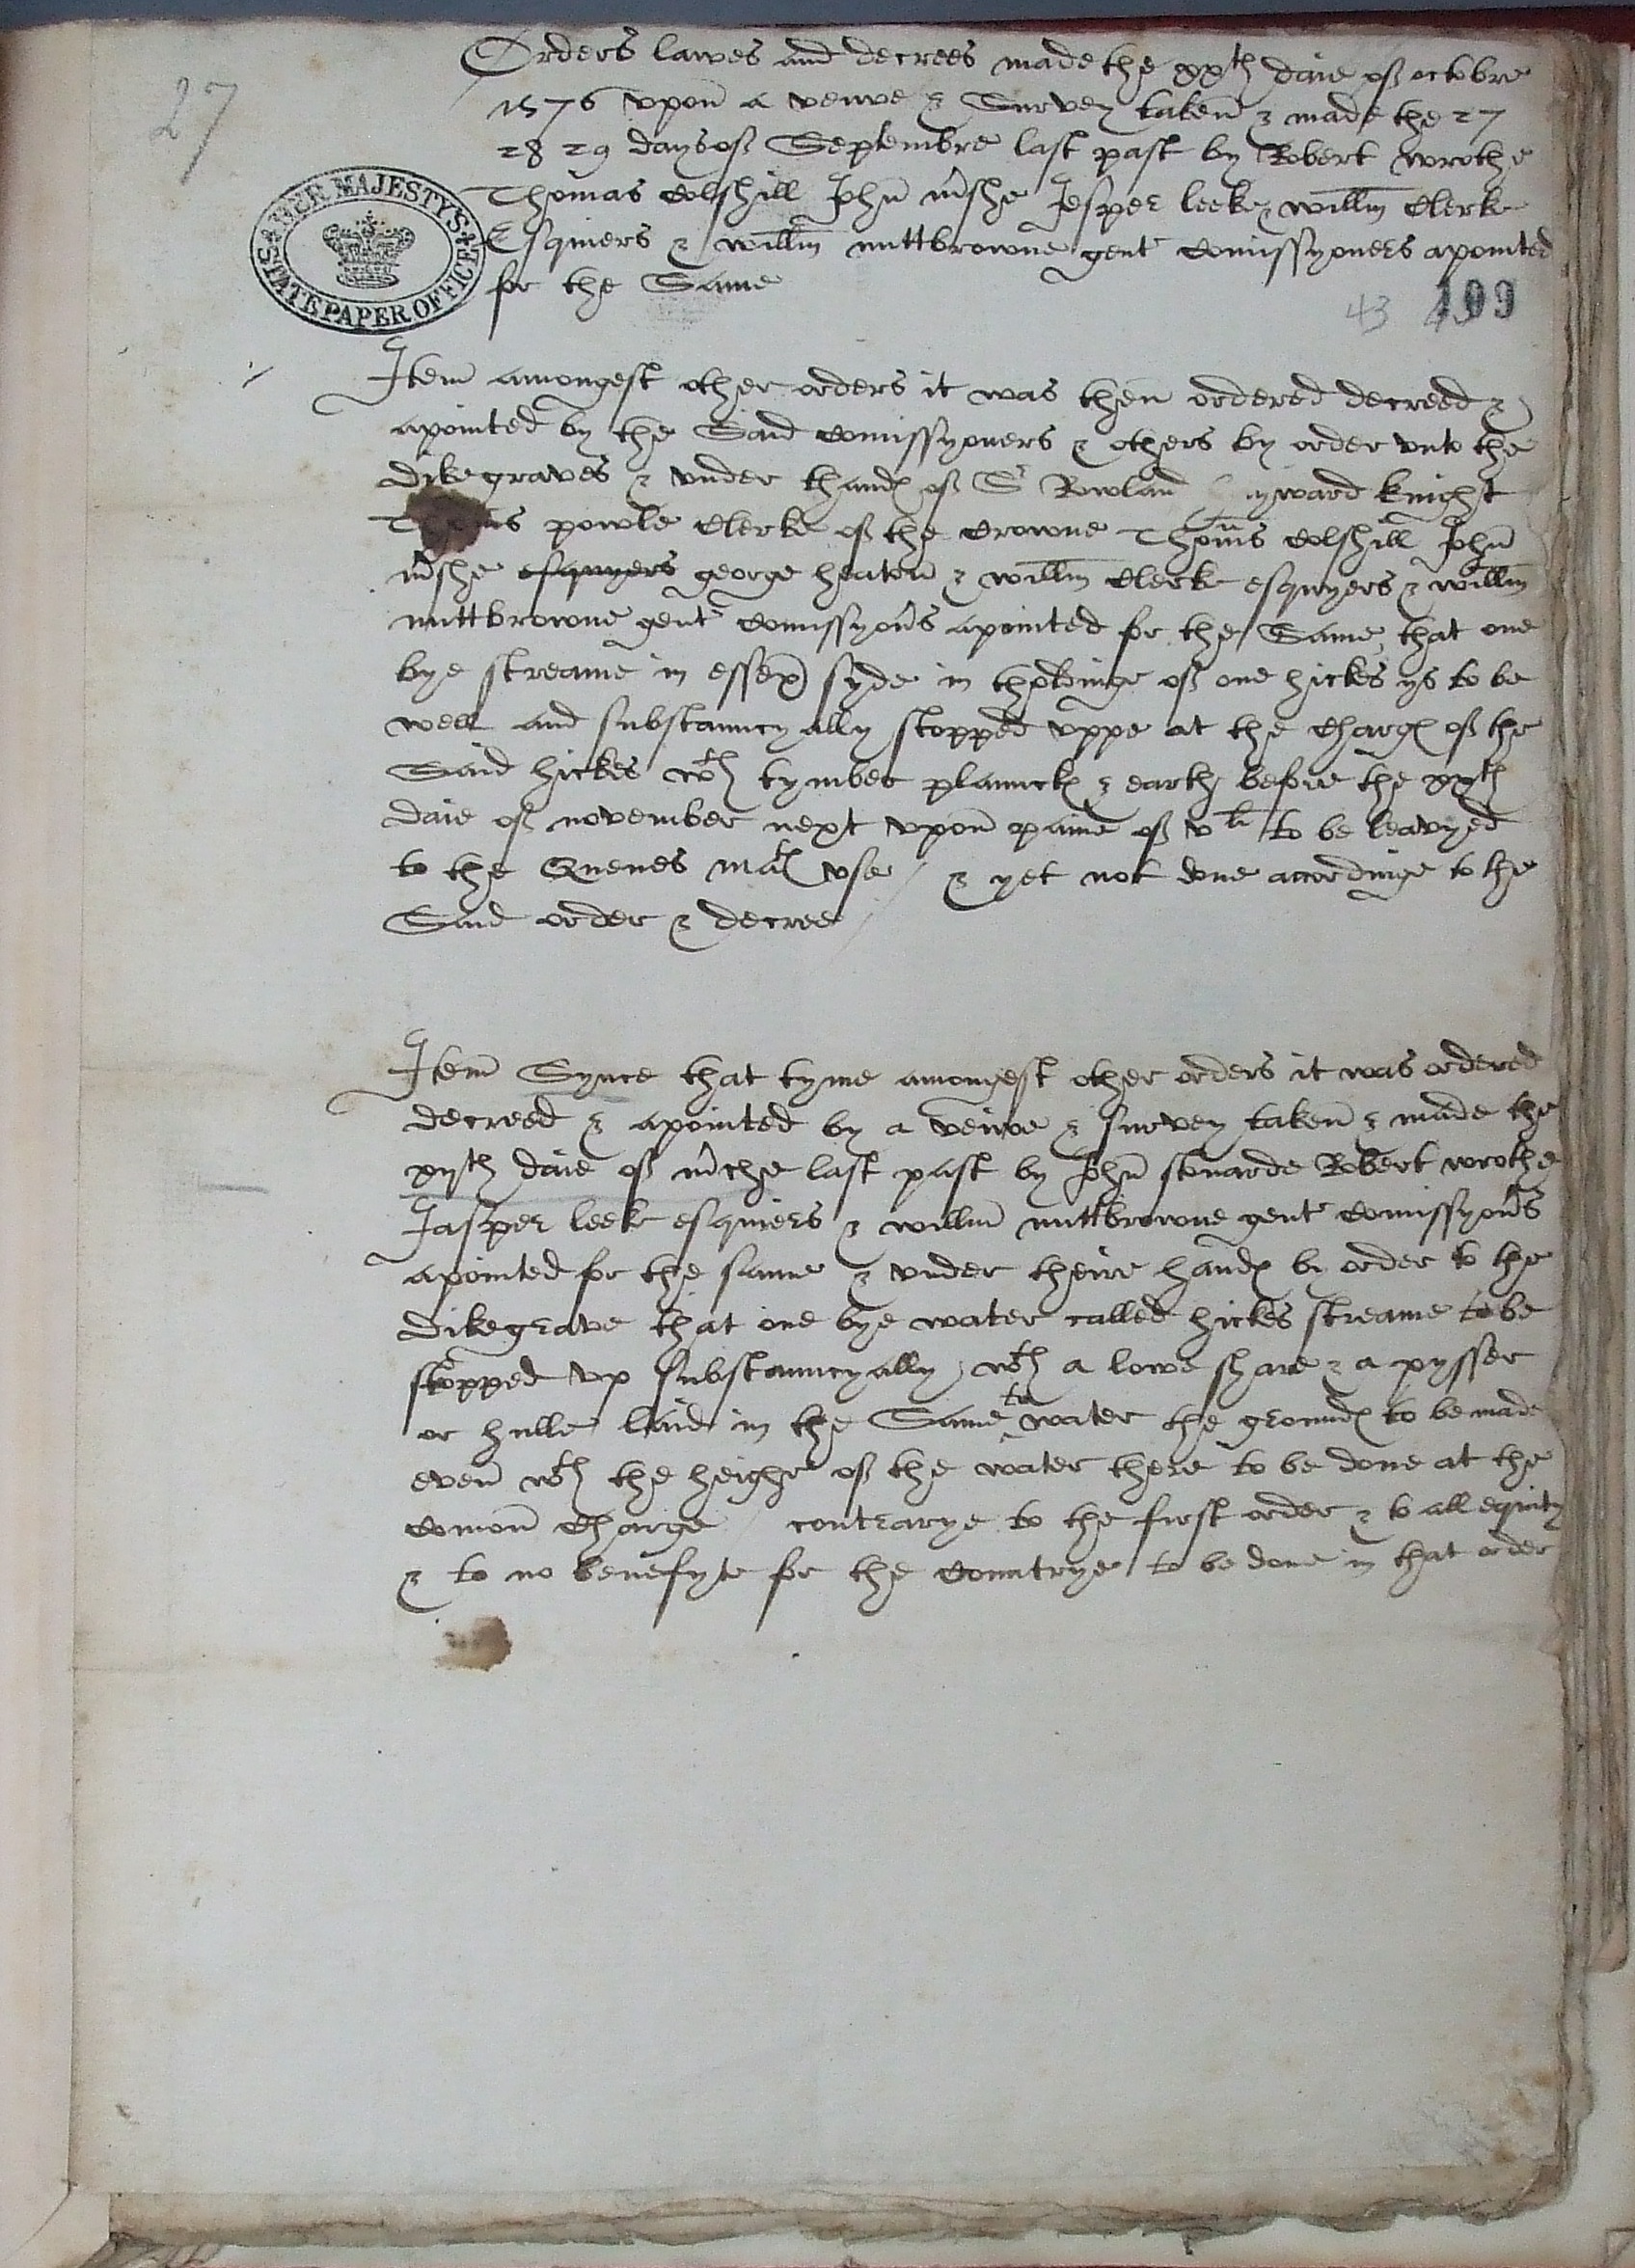 27
Orders lawes and decrees made the xxth daie of octobre
1576 vpon a veiwe & Survey taken & made the 27
28 29 days of Septembre last past by Robert wrothe
Thomas Colshill John mshe Jesper leeke willm Clerke
Esquiers & willm nuttbrowne gent Comissyoners apointed
for the Same
HER MAJESTY'S STATE PAPER OFFICE
43 109
Item amongest other orders it was then ordered decreed &
apointed by the Said Comissyoners & others by order vnto the
dikegraves & vnder thand of Sr Rowland yward knight
powle Clerke of the Crowne Thoms Colshill John
mshe esquyers george heaton & willm Clerke esquyers & willm
nuttbrowne gent Comissyons apointed for the Same that one
bye streame in essex syde in of one hickes ys to be
well and substauncyally stopped vppe at the charg of the
Said hickes wth tymber plannck & earth before the xxth
daie of november next vpon paine of vli to be leavyed
to the Quenes mat vse / & yet not done accordinge to the
Said order & decree
Item Synce that tyme amongest other orders it was ordered
decreed & apointed by a veiwe & survey taken & made the
daie of mche last past by John stouarde Robert wrothe
Jasper leeke esquiers & willm nuttbrowne gent Comissyons
apointed for the same & vnder theire hand by order to the
dikegrave that one bye water called hickes streame to be
stopped vp substauncyally wth a lowe share & a pysser
or hulle laid in the Same to water the ground to be made
even wth the height of the water there to be done at the
Comon Charge / contrarye to the first order & to all equity
& to no benefyte for the Countrye to be done in that order